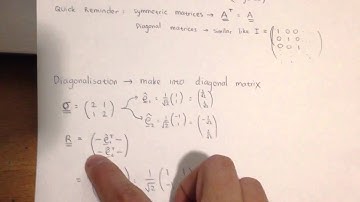 Quick Reminder: symmetric matrices → A^T = A
Diagonal matrices → similar like I = (1 0 0
0 1 0
0 0 1
Diagonalisation → make into diagonal matrix
σ = (2 1
1 2) → ê₁ = 1/√2 (1
1) = (1/√2
1/√2)
→ ê₂ = 1/√2 (-1
1) = (-1/√2
1/√2)
R = (– ê₁^T –
– ê₂^T –)
= 1/√2